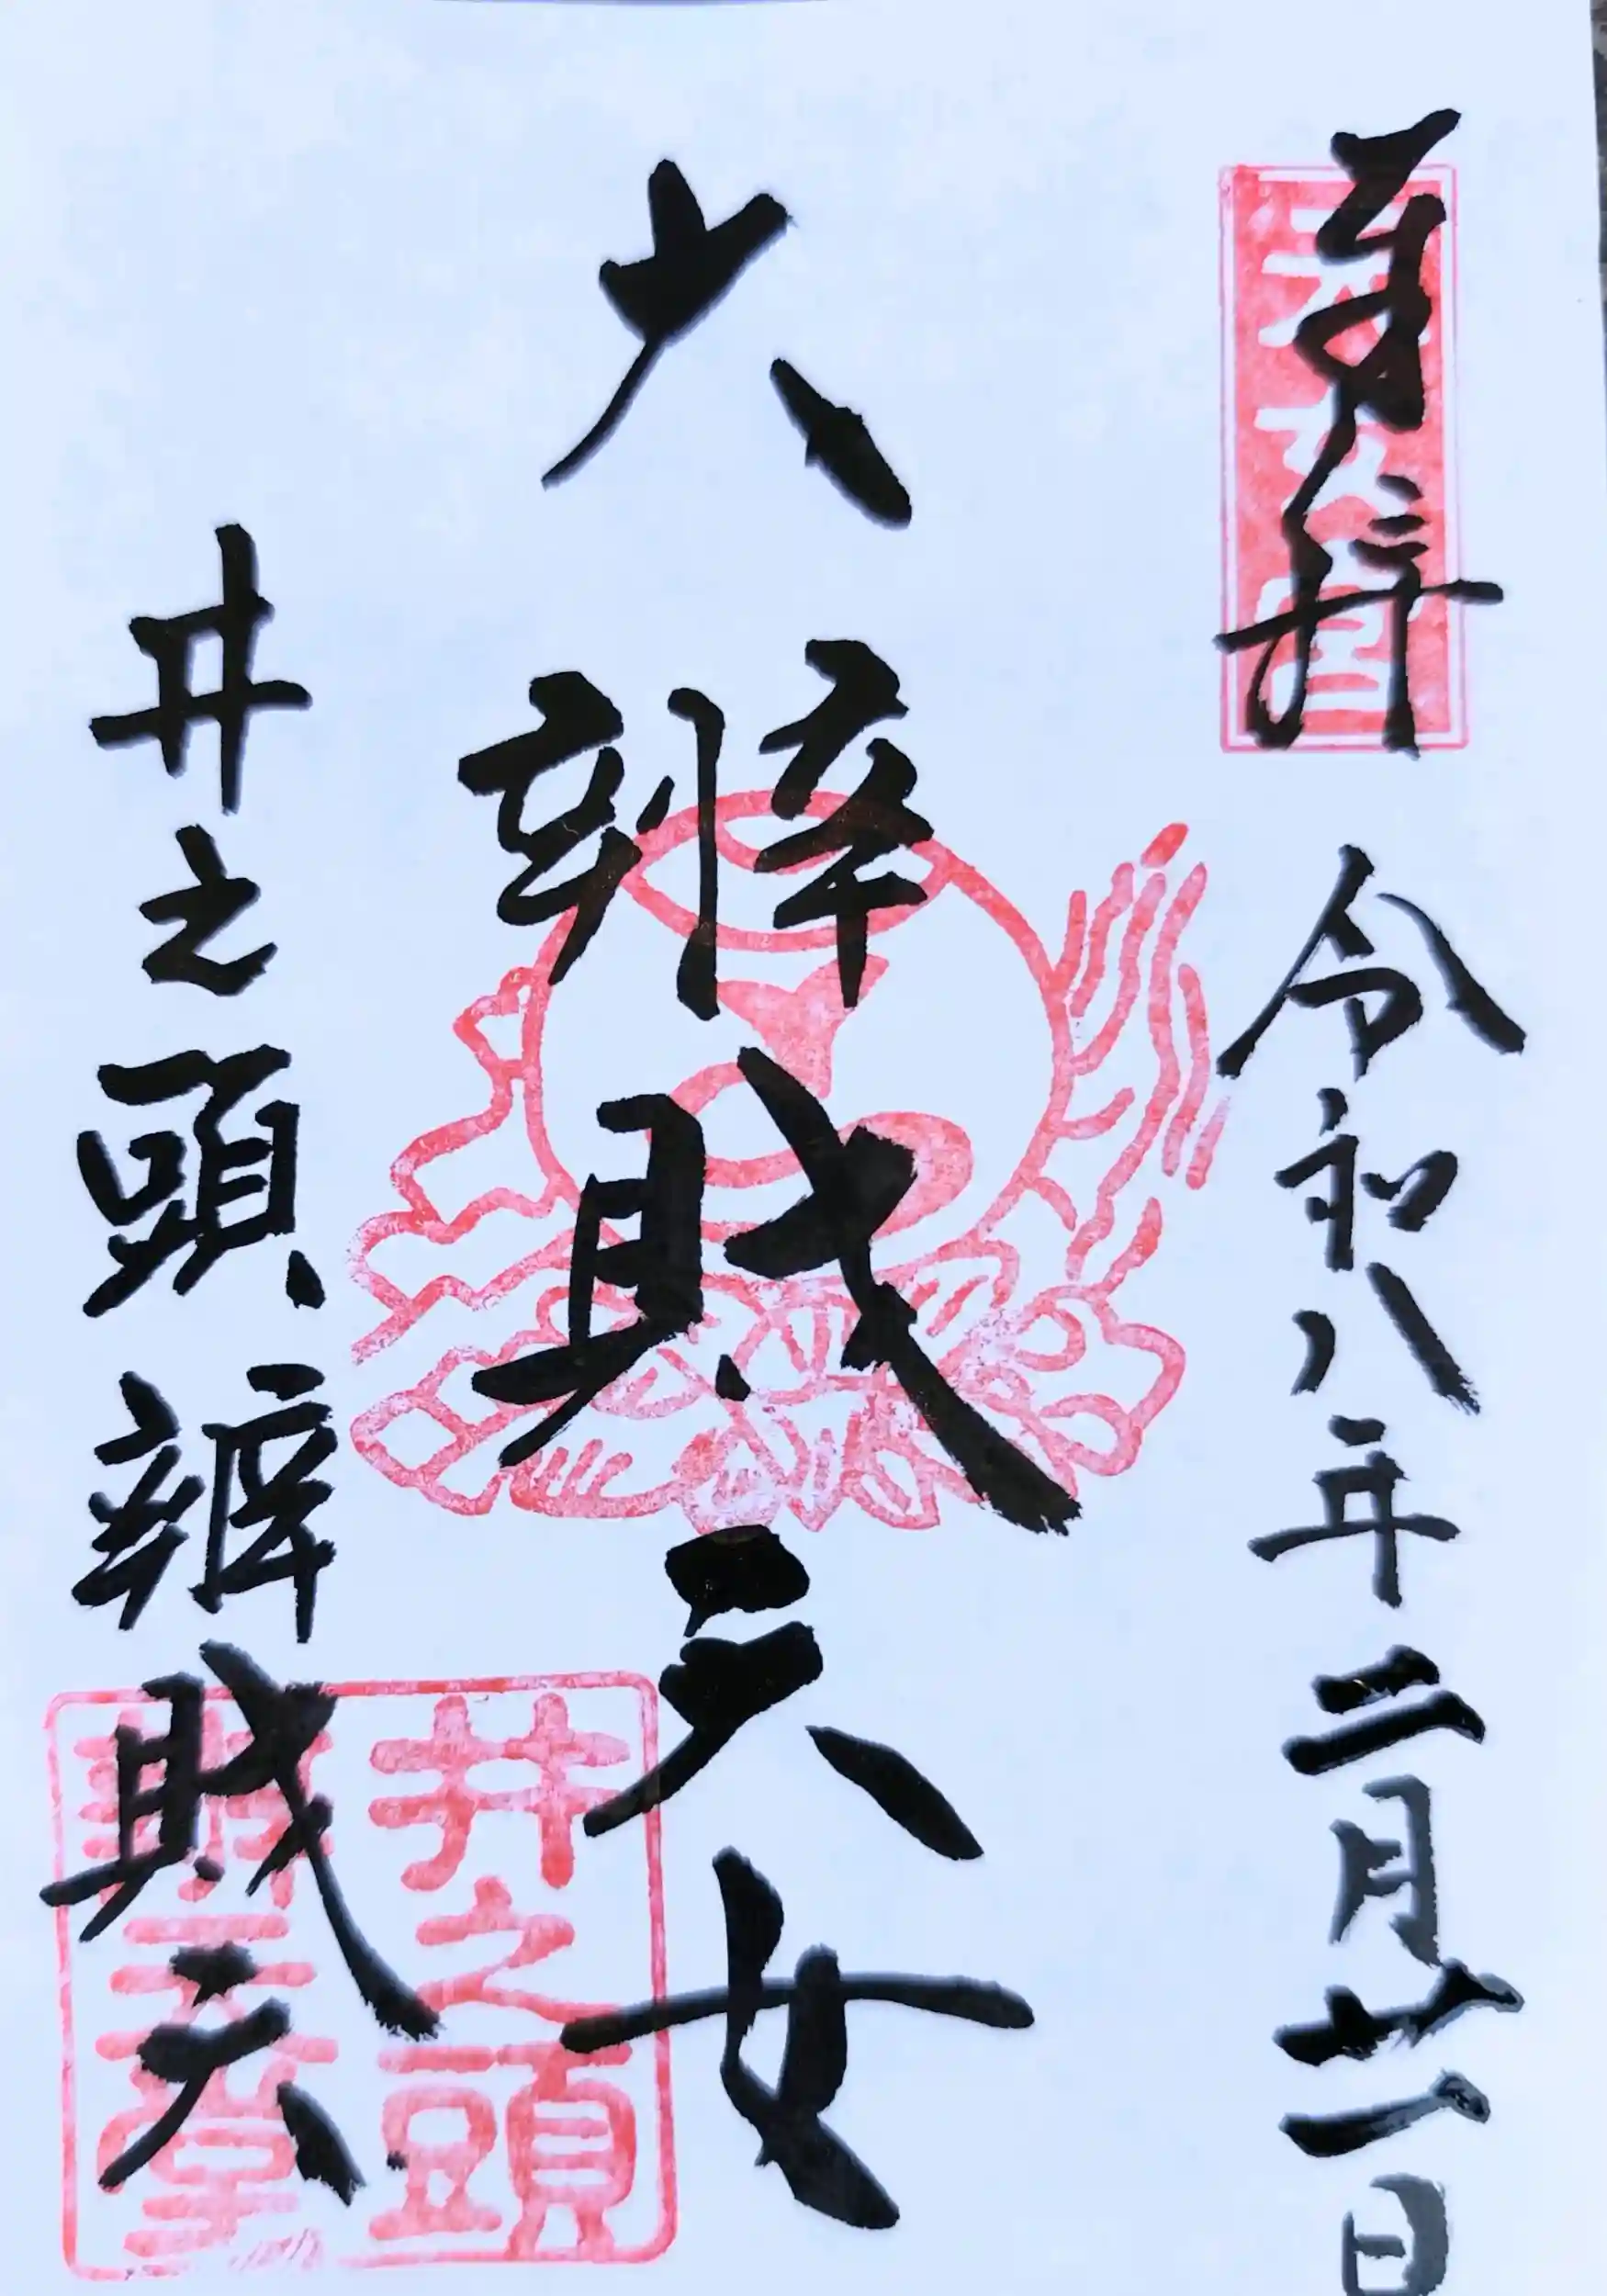 奉拝 令和八年二月廿一日
大辨財天女
井之頭辨財天
井之頭